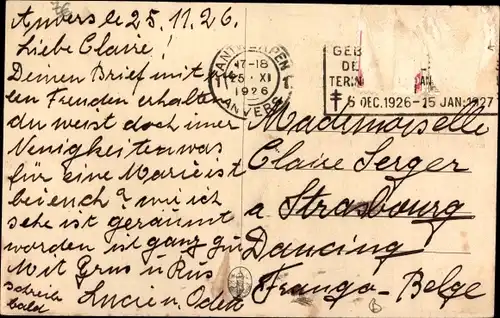 Anvers le 25.11.26.
Liebe Claire!
Deinen Brief mit
len Freuden erhalten
du weist doch imer
Neuigkeiten was
für eine Marie ist
bei euch? wie ich
sehe ist geräumt
worden ist ganz gu
Mit Grus u Kus
schreib
bald
Lucie u. Odett
ANTWERPEN
17-18
25 XI
1926
ANVERS
1
GEB
DE
TERIN
AN.
6 DEC.1926-15 JAN.1927
Mademoiselle
Claire Serger
a Strasbourg
Dancing
Franço-Belge
6